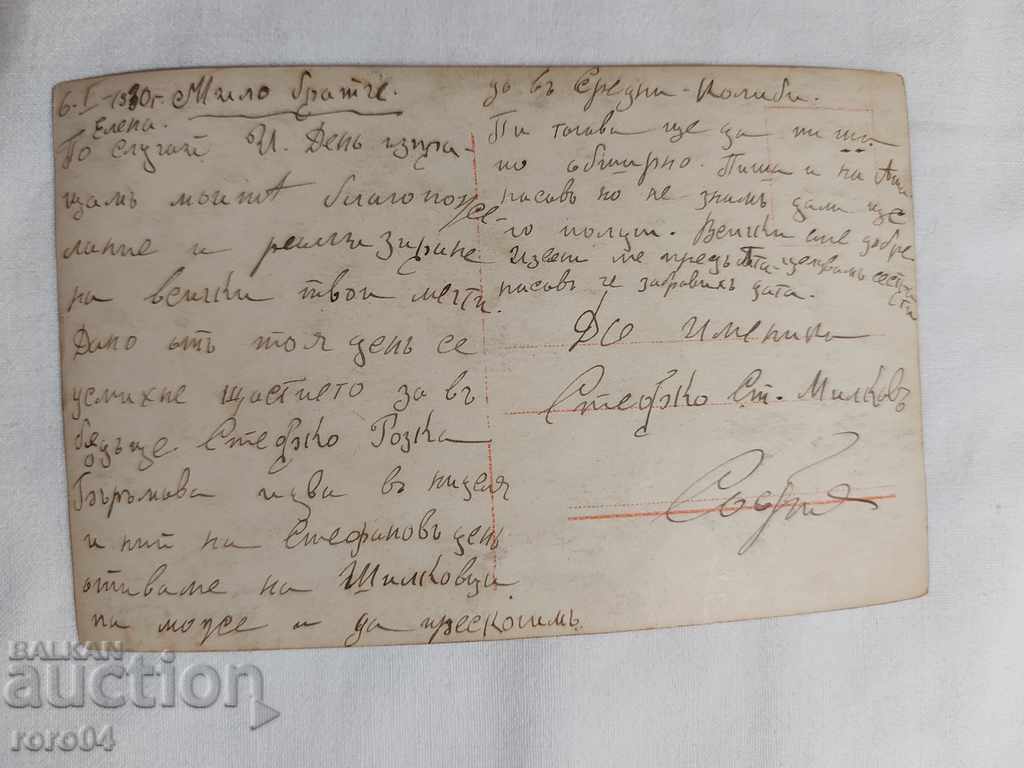 6.I–1930г. Мило братче.
Елена.
По случай И. День изпра-
щамъ моитѣ благопоже-
лание и реализиране
на всички твои мечти.
Дано отъ тоя день се
усмихне щастието за въ
бѫдъще Стефко Розка
Бъръмова идва въ ниделя
и ний на Стефановъ день
отиваме на Шилковци
па може и да прескочимъ
за въ Средни-Колиби.
Па тогава ще да ти пиша
по обширно. Писа и на
писавъ но не знамъ дали ще
го получи. Всички сме добре
Извени ме предъ
писавъ че забравихъ дата.
До Именика
Стефко Ст. Милковъ
София
BALKAN
auction
roro04